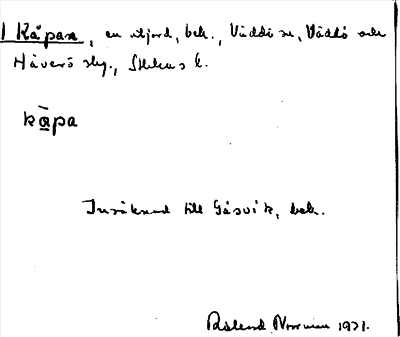 1 Kåpan, en utjord, bek., Väddö sn, Väddö och
Häverö slg., Sthlms l.
kåpa
Insöknad till Gåsvik, bek.
Roland Norrman 1971.